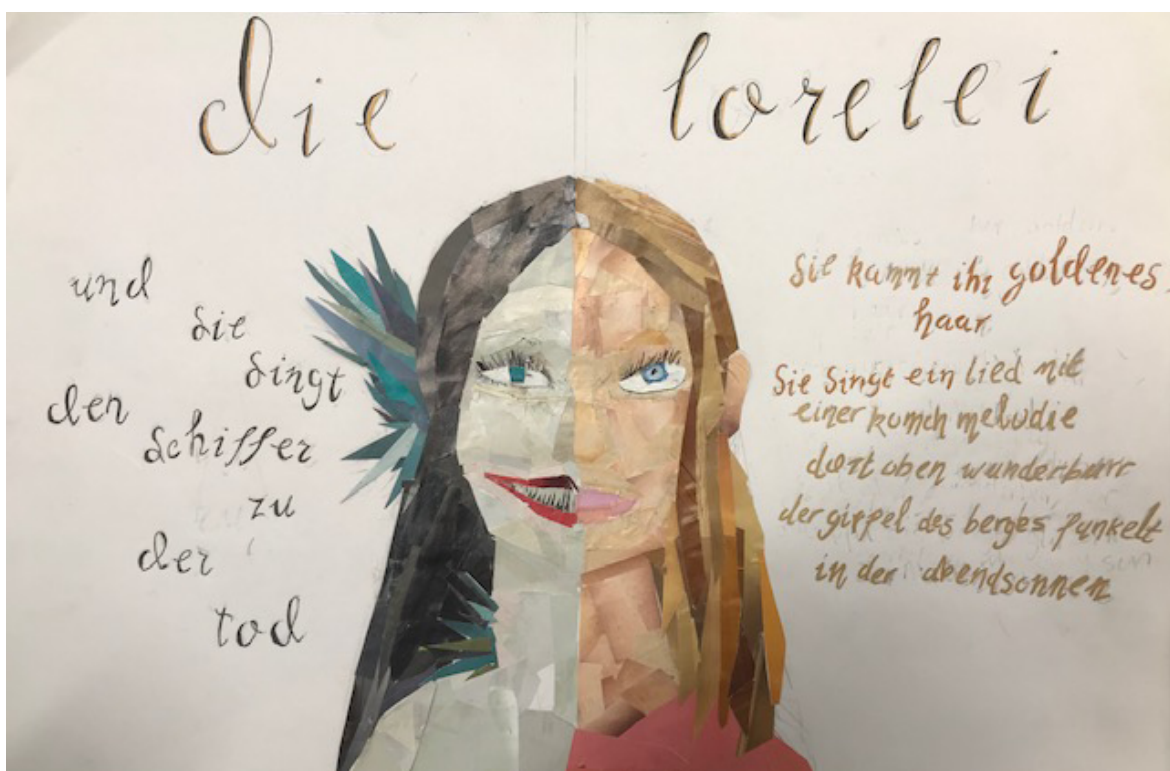 die lorelei
und
sie
singt
den
schiffer
zu
der
tod
sie kammt ihr goldenes
haar
Sie singt ein lied mit
einer komch melodie
dort oben wunderbarr
der gipfel des berges funkelt
in der abendsonnen